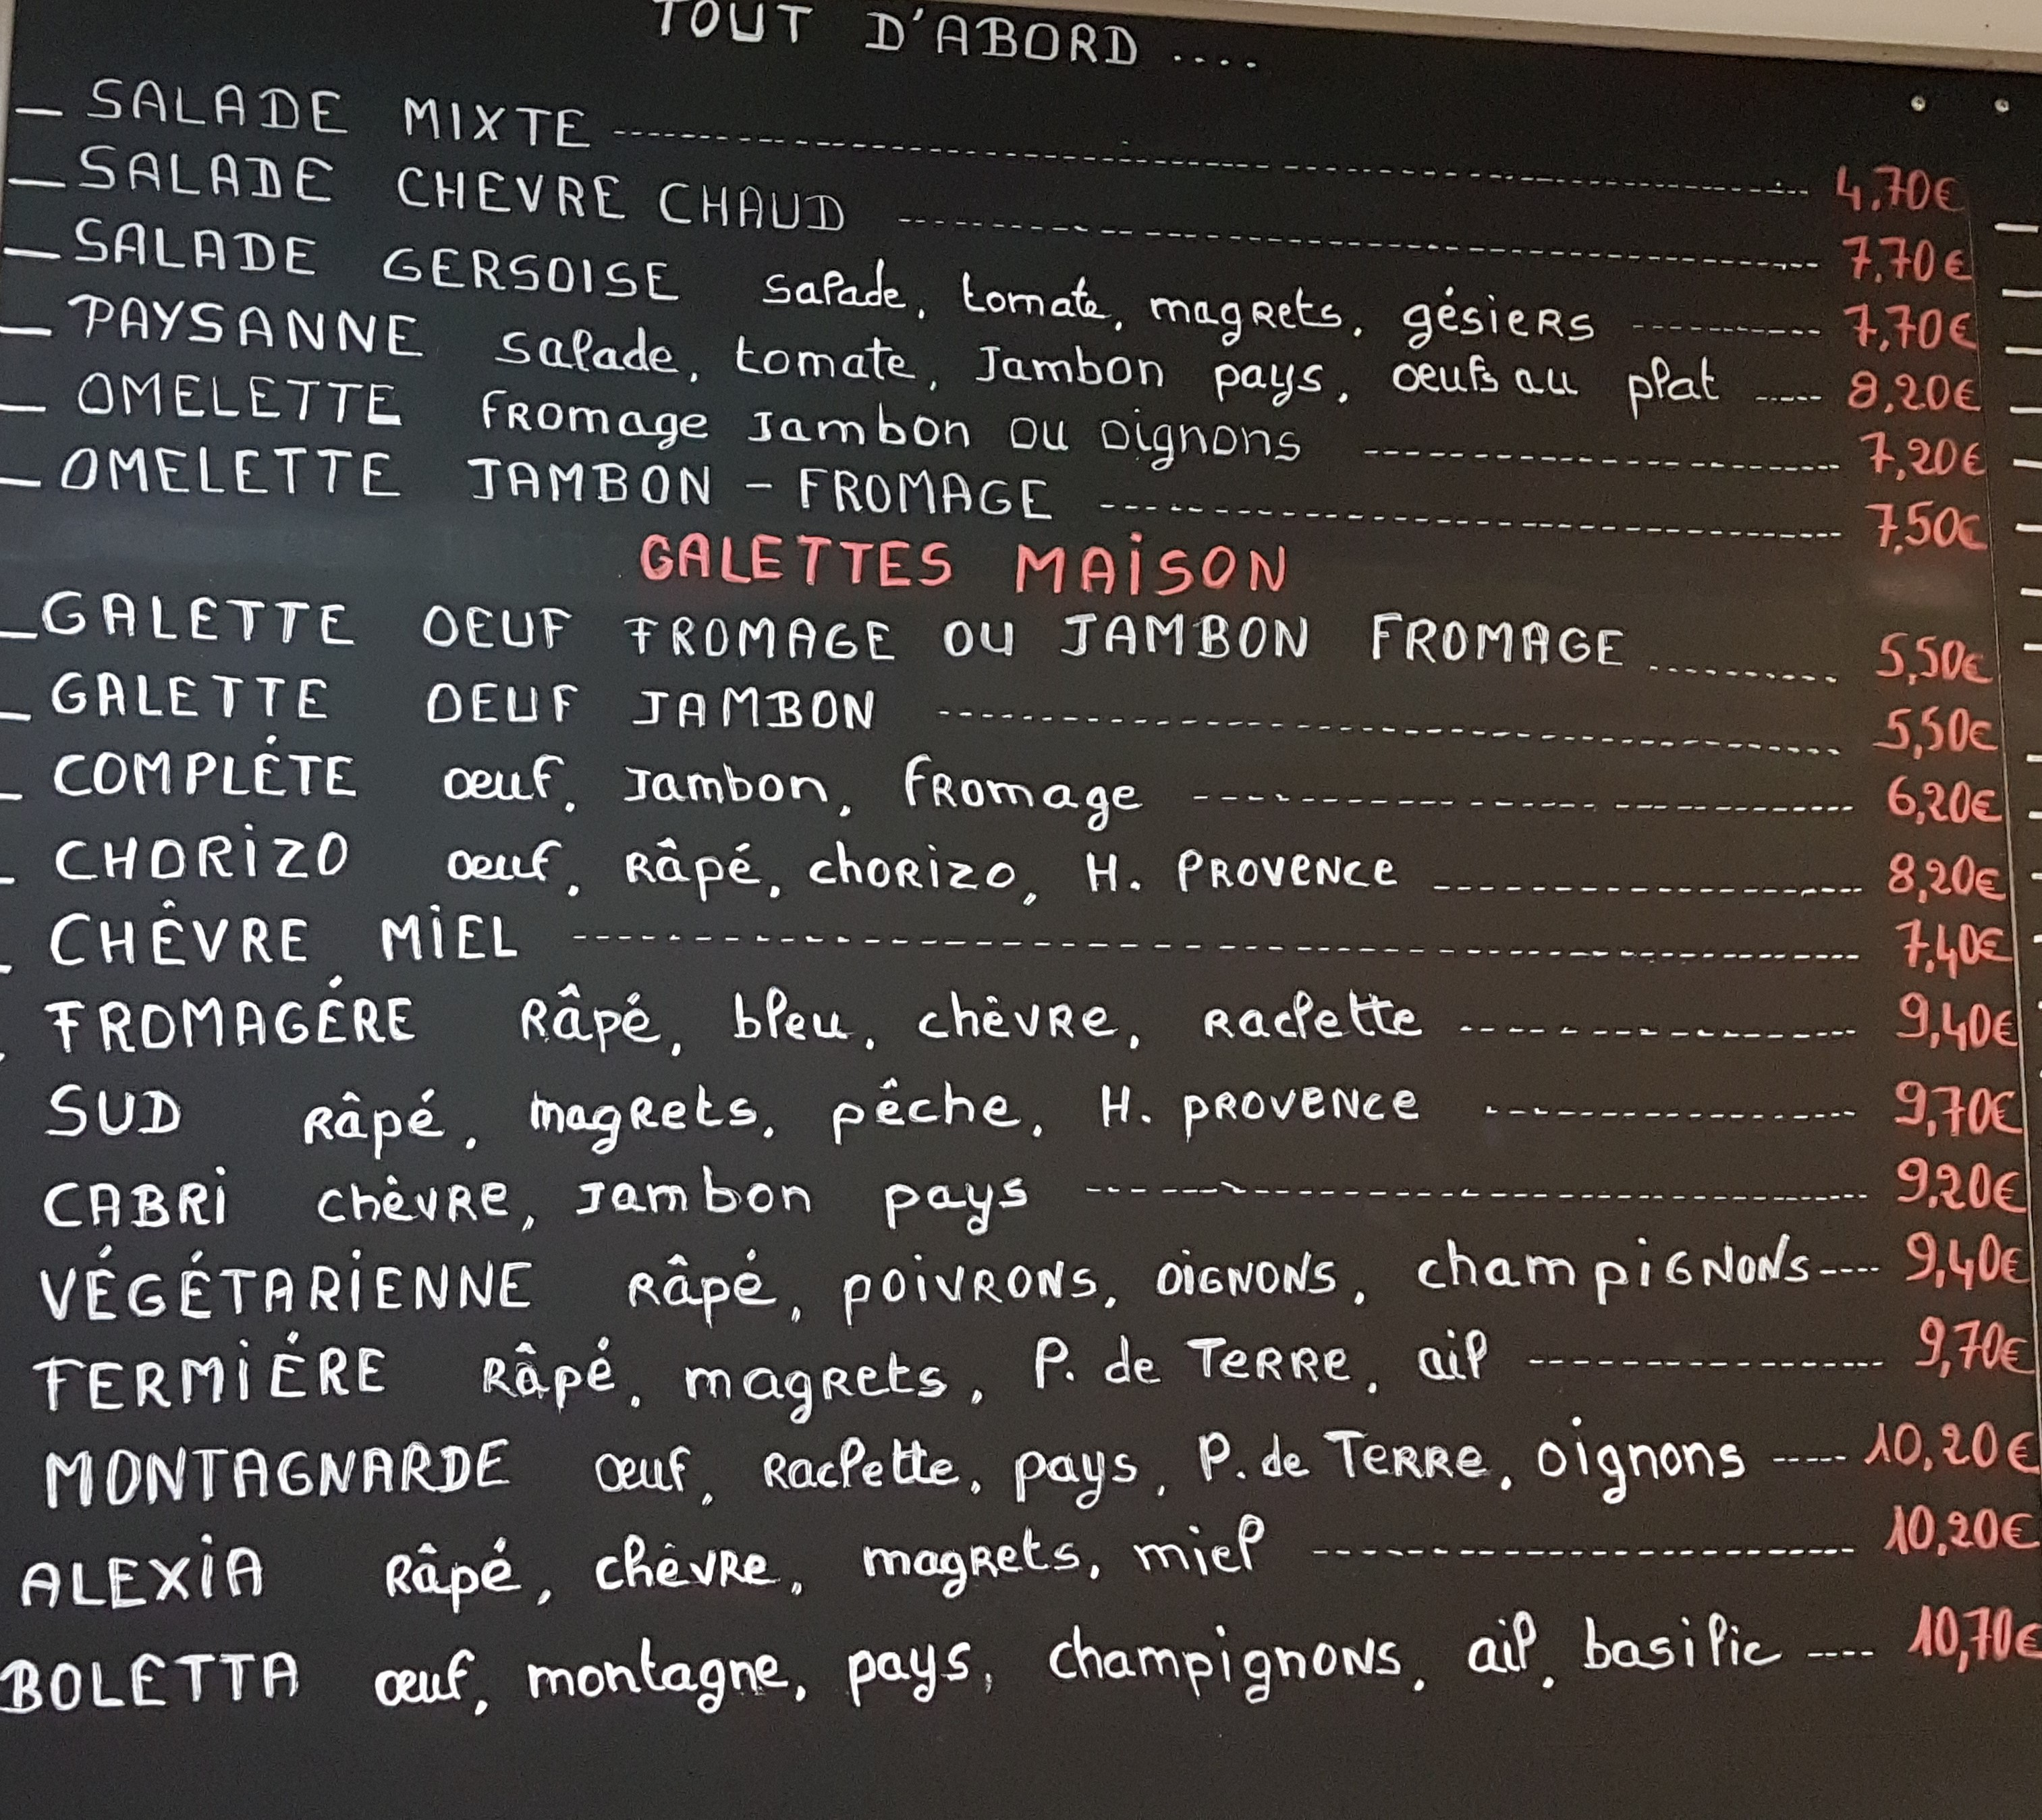 TOUT D'ABORD ....
- SALADE MIXTE 4,70€
- SALADE CHEVRE CHAUD 7,70€
- SALADE GERSOISE salade, tomate, magrets, gésiers 7,70€
- PAYSANNE salade, tomate, Jambon pays, oeufs au plat 8,20€
- OMELETTE fromage Jambon ou oignons 7,20€
- OMELETTE JAMBON - FROMAGE 7,50€
GALETTES MAiSON
- GALETTE OEUF FROMAGE OU JAMBON FROMAGE 5,50€
- GALETTE OEUF JAMBON 5,50€
- COMPLÉTE oeuf, Jambon, fromage 6,20€
- CHORiZO oeuf, Râpé, chorizo, H. PROVENCE 8,20€
- CHÊVRE MiEL 7,40€
FROMAGÉRE Râpé, bleu, chèvre, Raclette 9,40€
SUD Râpé, magrets, pêche, H. PROVENCE 9,70€
CABRi chèvre, Jambon pays 9,20€
VÉGÉTARiENNE Râpé, poivrons, oignons, champignons 9,40€
FERMiÉRE Râpé, magrets, P. de Terre, ail 9,70€
MONTAGNARDE œuf, Raclette, pays, P. de Terre, oignons 10,20€
ALEXiA Râpé, chêvre, magrets, miel 10,20€
BOLETTA œuf, montagne, pays, champignons, ail, basilic 10,70€